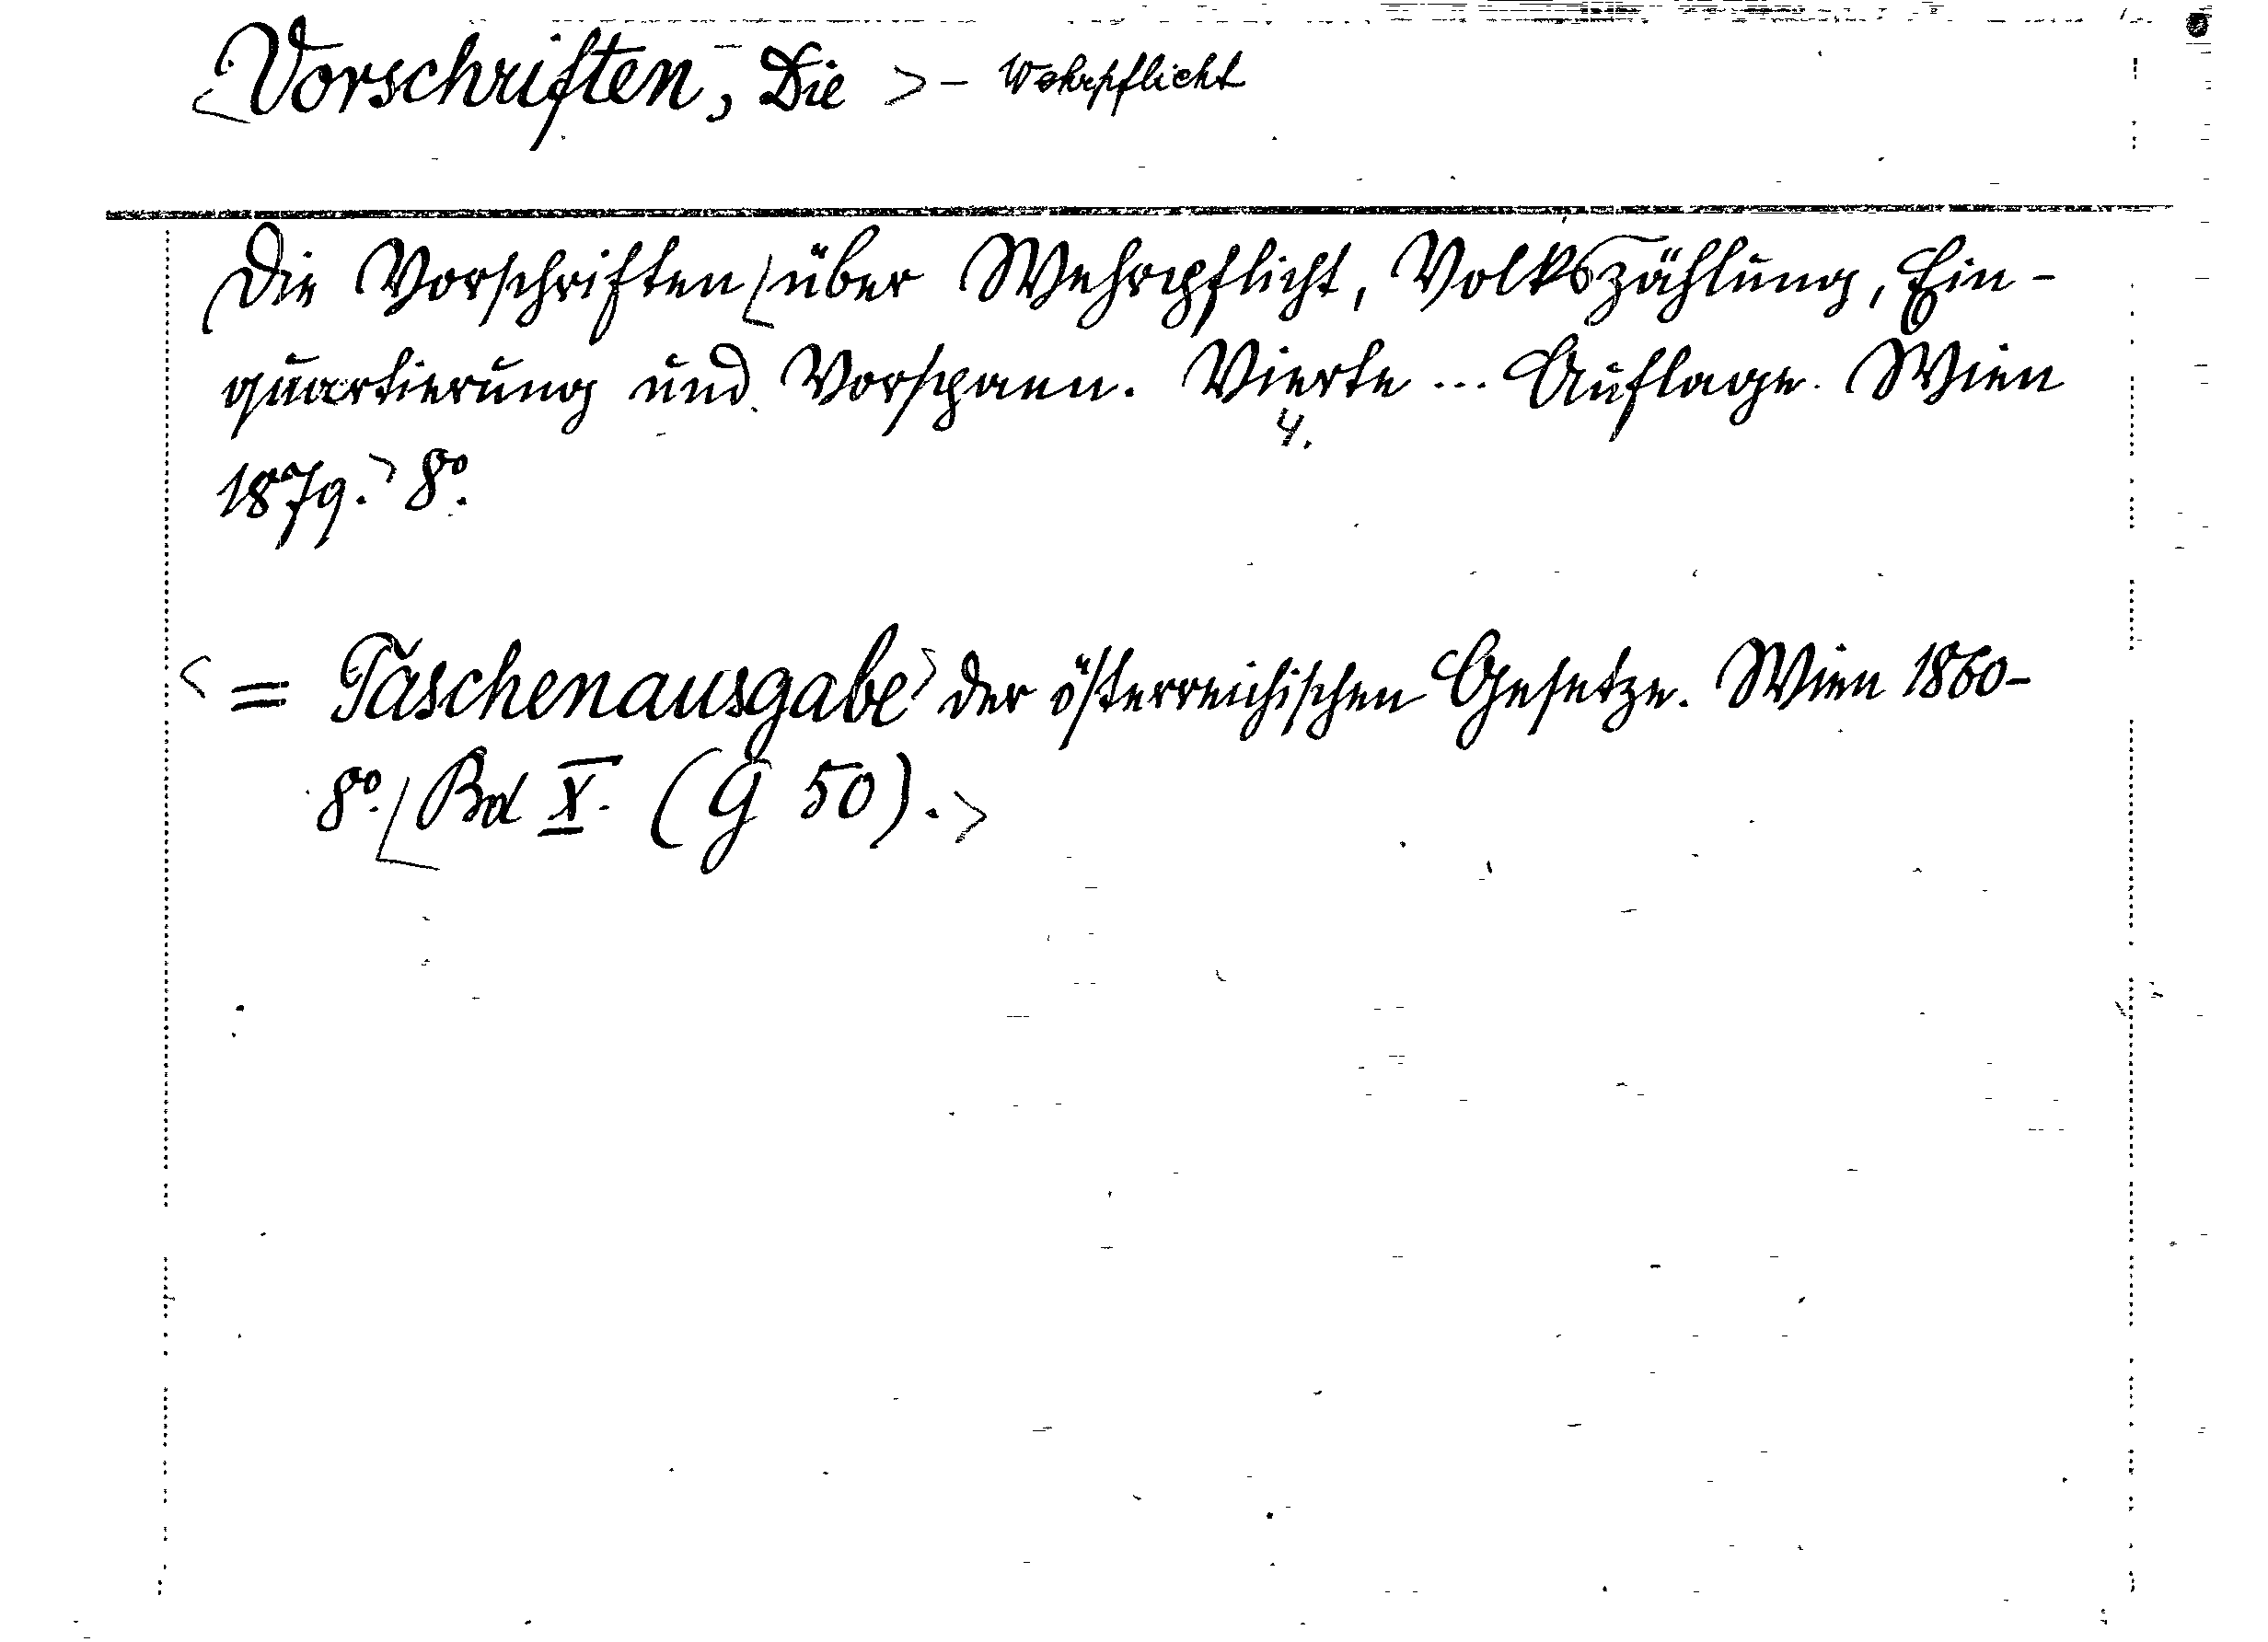 <Vorschriften, Die > - Wehrpflicht
Die Vorschriften < über Wehrpflicht, Volkszählung, Ein-
quartierung und Vorspann. Vierte ... Auflage. Wien
4.
1879. > 8°.
< = Taschenausgabe > der österreichischen Gesetze. Wien 1860-
8°. < Bd X. (G 50). >